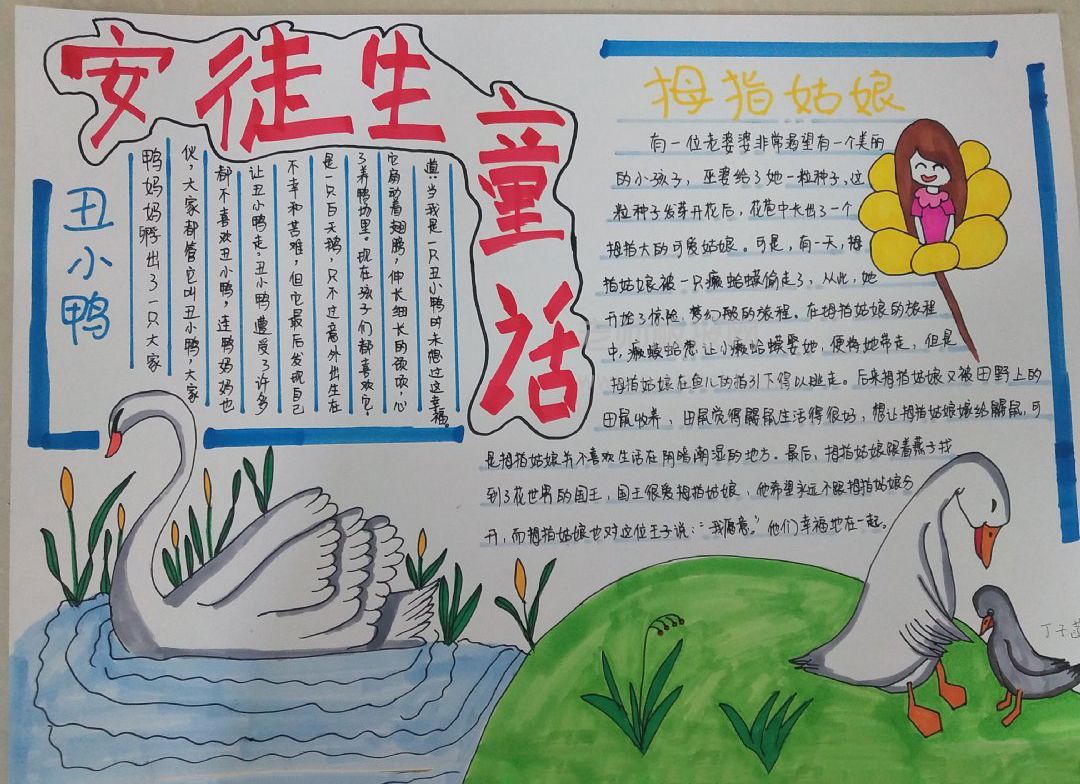 安徒生童话
丑小鸭
鸭妈妈孵出了一只大家
伙，大家都管它叫丑小鸭，大家
都不喜欢丑小鸭，连鸭妈妈也
让丑小鸭走，丑小鸭遭受了许多
不幸和苦难，但它最后发现自己
是一只白天鹅，只不过意外出生在
了养鸭场里。现在孩子们都喜欢它，
它扇动着翅膀，伸长细长的颈项，心
道：当我是一只丑小鸭时未想过这幸福。
拇指姑娘
有一位老婆婆非常渴望有一个美丽
的小孩子，巫婆给了她一粒种子，这
粒种子发芽开花后，花苞中长出了一个
拇指大的可爱姑娘。可是，有一天，拇
指姑娘被一只癞蛤蟆偷走了，从此，她
开始了惊险、梦幻般的旅程。在拇指姑娘的旅程
中，癞蟆蛤想让小癞蛤蟆娶她，便将她带走，但是
拇指姑娘在鱼儿的指引下得以逃走。后来拇指姑娘又被田野上的
田鼠收养，田鼠觉得鼹鼠生活得很好，想让拇指姑娘嫁给鼹鼠，可
是拇指姑娘并不喜欢生活在阴暗潮湿的地方。最后，拇指姑娘跟着燕子找
到了花世界的国王，国王很爱拇指姑娘，他希望永远不跟拇指姑娘分
开，而拇指姑娘也对这位王子说：“我愿意。”他们幸福地在一起。
丁子